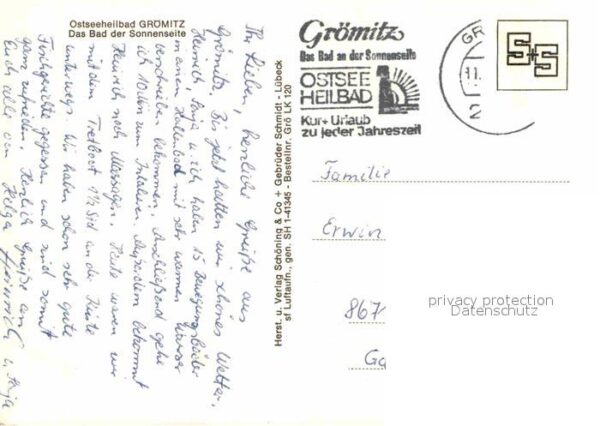 Ostseeheilbad GRÖMITZ
Das Bad der Sonnenseite
Ihr Lieben, herzliche Grüße aus
Grömitz. Bis jetzt hatten wir schönes Wetter.
Heinrich, Anja u. ich haben 15 Bewegungsbäder
in einem Hallenbad mit sehr warmem Wasser
verschrieben bekommen, Anschließend gehe
ich 10 Min zum Inhalieren. Außerdem bekommt
Heinrich noch Massagen. Heute waren wir
mit dem Tretboot 1½ Std an der Küste
unterwegs. Wir haben schon sehr gute
Fischgerichte gegessen und sind somit
ganz zufrieden. Herzlich Grüße an
Euch alle von Helga Heinrich u. Anja
Herst. u. Verlag Schöning & Co + Gebrüder Schmidt - Lübeck
sf Luftaufn., gen. SH 1-41345 - Bestellnr. Grö LK 120
Grömitz
Das Bad an der Sonnenseite
OSTSEE
HEILBAD
Kur + Urlaub
zu jeder Jahreszeit
GR
11.
2
S+S
Familie
Erwin
867
Ga
privacy protection
Datenschutz